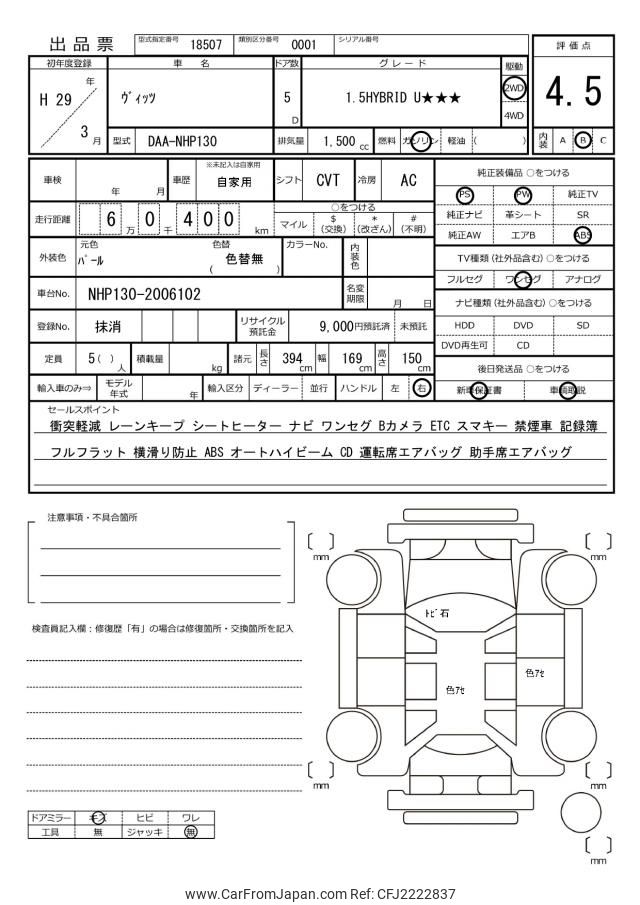 出品票
型式指定番号 18507 類別区分番号 0001 シリアル番号
評価点
4.5
内装 A B C
初年度登録 車名 ドア数 グレード 駆動
H 29 年 3 月
ヴィッツ 5 D 1.5HYBRID U★★★ 2WD 4WD
型式 DAA-NHP130 排気量 1,500 cc 燃料 ガソリン 軽油 ( )
車検 年 月 車歴 ※未記入は自家用 自家用 シフト CVT 冷房 AC
純正装備品 ○をつける
PS PW 純正TV
純正ナビ 革シート SR
純正AW エアB ABS
走行距離 6 万 0 千 4 0 0 km
○をつける
マイル $ (交換) * (改ざん) # (不明)
外装色 元色 パール 色替 ( 色替無 ) カラーNo. 内装色
TV種類 (社外品含む) ○をつける
フルセグ ワンセグ アナログ
車台No. NHP130-2006102 名変期限 月 日
ナビ種類 (社外品含む) ○をつける
HDD DVD SD
DVD再生可 CD
登録No. 抹消 リサイクル預託金 9,000円預託済 未預託
定員 5 ( ) 人 積載量 kg 諸元 長さ 394 cm 幅 169 cm 高さ 150 cm
後日発送品 ○をつける
新車保証書 車輌取説
輸入車のみ⇒ モデル年式 年 輸入区分 ディーラー 並行 ハンドル 左 右
セールスポイント
衝突軽減 レーンキープ シートヒーター ナビ ワンセグ Bカメラ ETC スマキー 禁煙車 記録簿
フルフラット 横滑り防止 ABS オートハイビーム CD 運転席エアバッグ 助手席エアバッグ
注意事項・不具合箇所
検査員記入欄：修復歴「有」の場合は修復箇所・交換箇所を記入
[ ] mm
[ ] mm
トビ石
色アセ
色アセ
[ ] mm
[ ] mm
[ ] mm
ドアミラー キズ ヒビ ワレ
工具 無 ジャッキ 無
www.CarFromJapan.com Ref: CFJ2222837